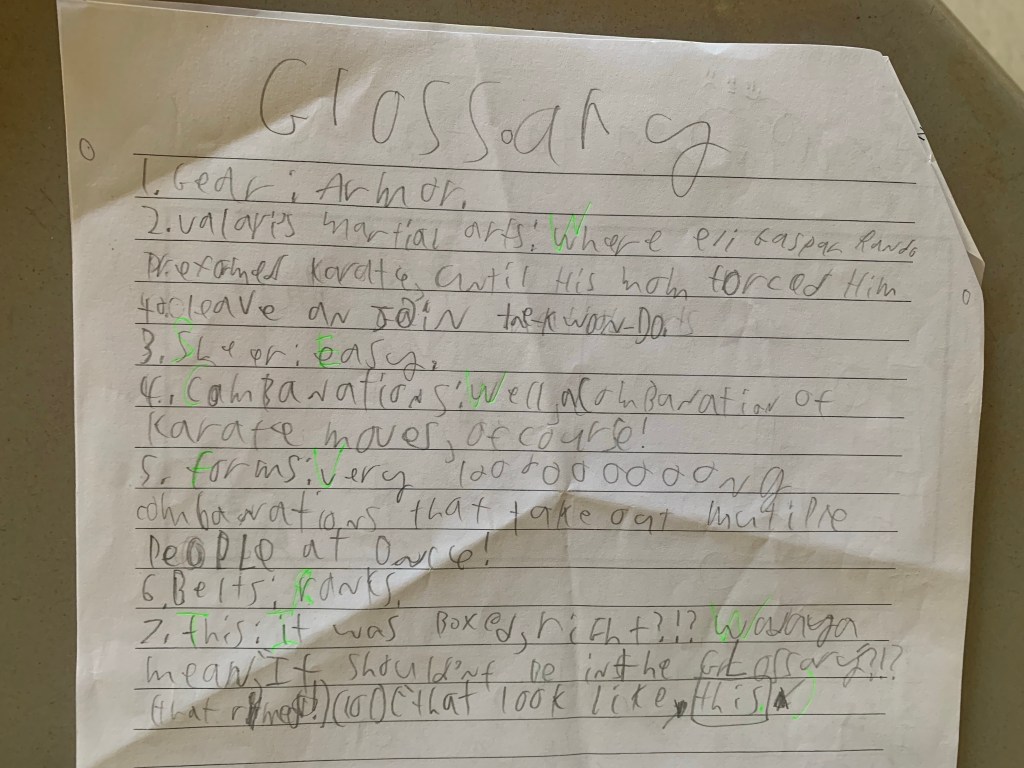 Glossary
1. Gear: Armor.
2. valaris martial arts: Where eli Gaspar
Preformed Karate, until His mom forced Him
to leave an join tae-kwon-Do.
3. Sheer: Easy.
4. Combanations: Well, a combanation of
Karate moves, of course!
5. forms: Very looooooooong
combanations that take out mutiple
PeoPLe at Once!
6. Belts: Ranks.
7. This: It was Boxed, right?!? Wadaya
mean, It shouldn't be in the GLossary?!?
(that rimed!) (lol) (that look like this